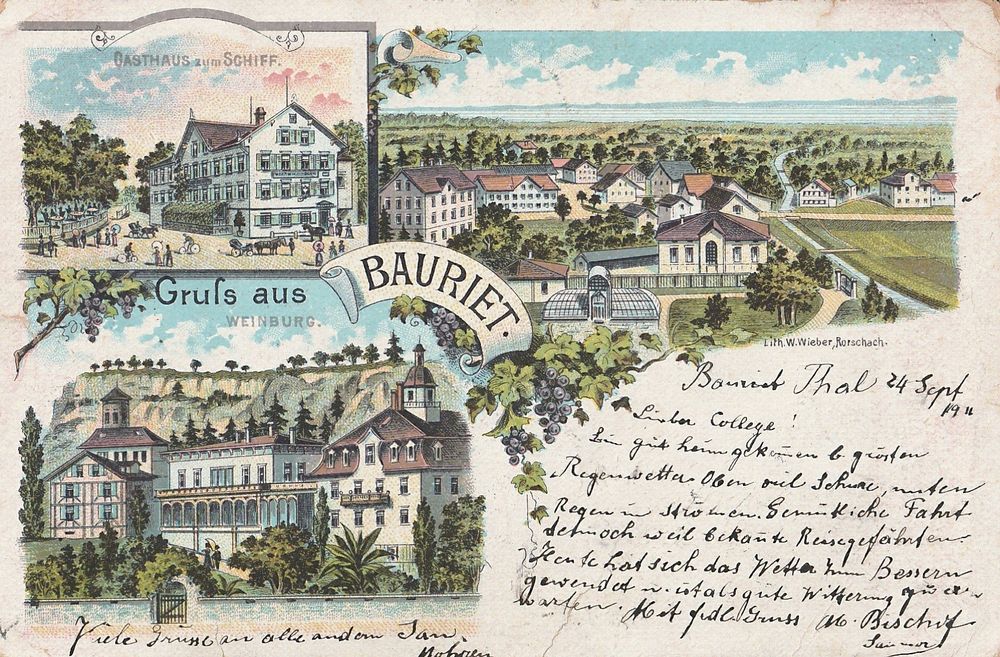 GASTHAUS zum SCHIFF.
Gruſs aus
BAURIET.
WEINBURG.
Lith. W. Wieber, Rorschach.
Bauriet Thal 24 Sept
1911
Lieber College!
Bin gut heimgekom̅en b. grösten
Regenwetter. Oben viel Schnee, unten
Regen in strömen. Gemütliche Fahrt
dennoch weil bekan̅te Reisegefährten.
Heute hat sich das Wetter zum Bessern
gewendet u. ist als gute Witterung zu er-
warten. Mit frdl. Gruss M. Bischof
Viele Grüsse an alle andern